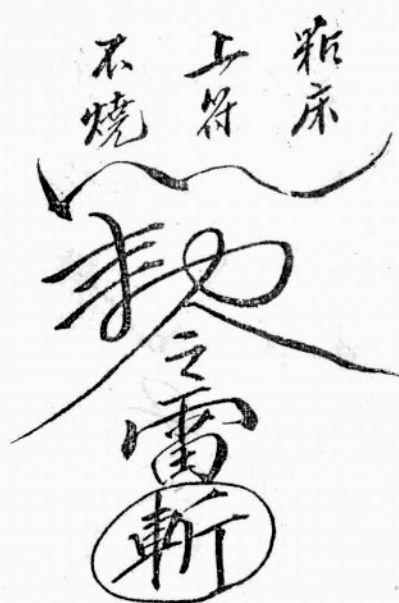 粘床
上符
不燒
勅
之
雷
斬